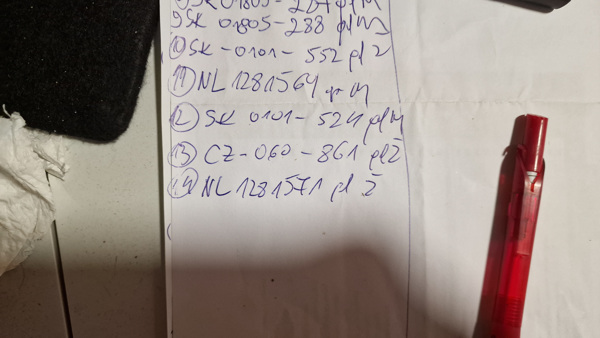 SK 01805-
9 SK 01805-288 pl M
10 SK-0101-552 pl Ž
11 NL 1281564 M
12 SK 0101-524 pl M
13 CZ-060-861 pl Ž
14 NL 1281571 pl Ž